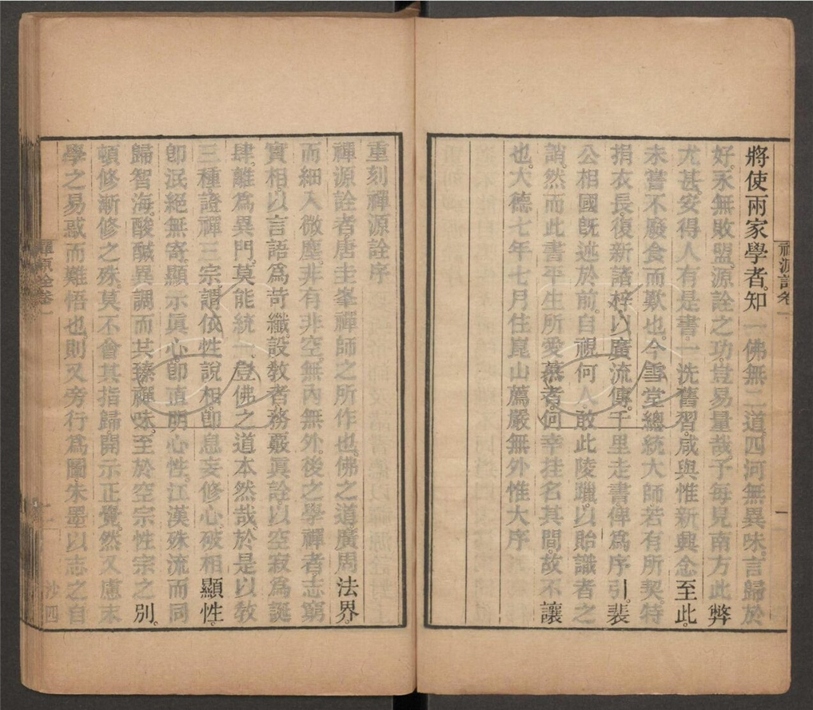 將使兩家學者。知一佛無二道四河無異味。言歸於
好。永無敗盟。源詮之功豈易量哉。予每見南方此弊
尤甚。安得人有是書。一洗舊習。咸與惟新。興念至此。
未嘗不廢食而歎也。今雪堂總統大師。若有所契。特
捐衣長。復新諸梓。以廣流傳。千里走書。俾為序引。裴
公相國既述於前。自視何人。敢此陵躐。以貽識者之
誚。然而此書平生所愛慕者。何幸挂名其間。故不讓
也。大德七年七月住崑山薦嚴無外惟大序
重刻禪源詮序
禪源詮者唐圭峯禪師之所作也。佛之道廣周法界。
而細入微塵。非有非空。無內無外。後之學禪者志窮
實相。以言語為苛纖。設教者務覈真詮。以空寂為誕
肆。離為異門。莫能統一。豈佛之道本然哉。於是以教
三種證禪三宗。謂依性說相。即息妄修心。破相顯性。
即泯絕無寄。顯示真心。即直明心性。江漢殊流而同
歸智海。酸鹹異調而共臻禪味。至於空宗性宗之別。
頓修漸修之殊。莫不會其指歸。開示正覺。然又慮末
學之易惑而難悟也。則又旁行為圖。朱墨以志之。自
禪源詮卷一
一
沙四